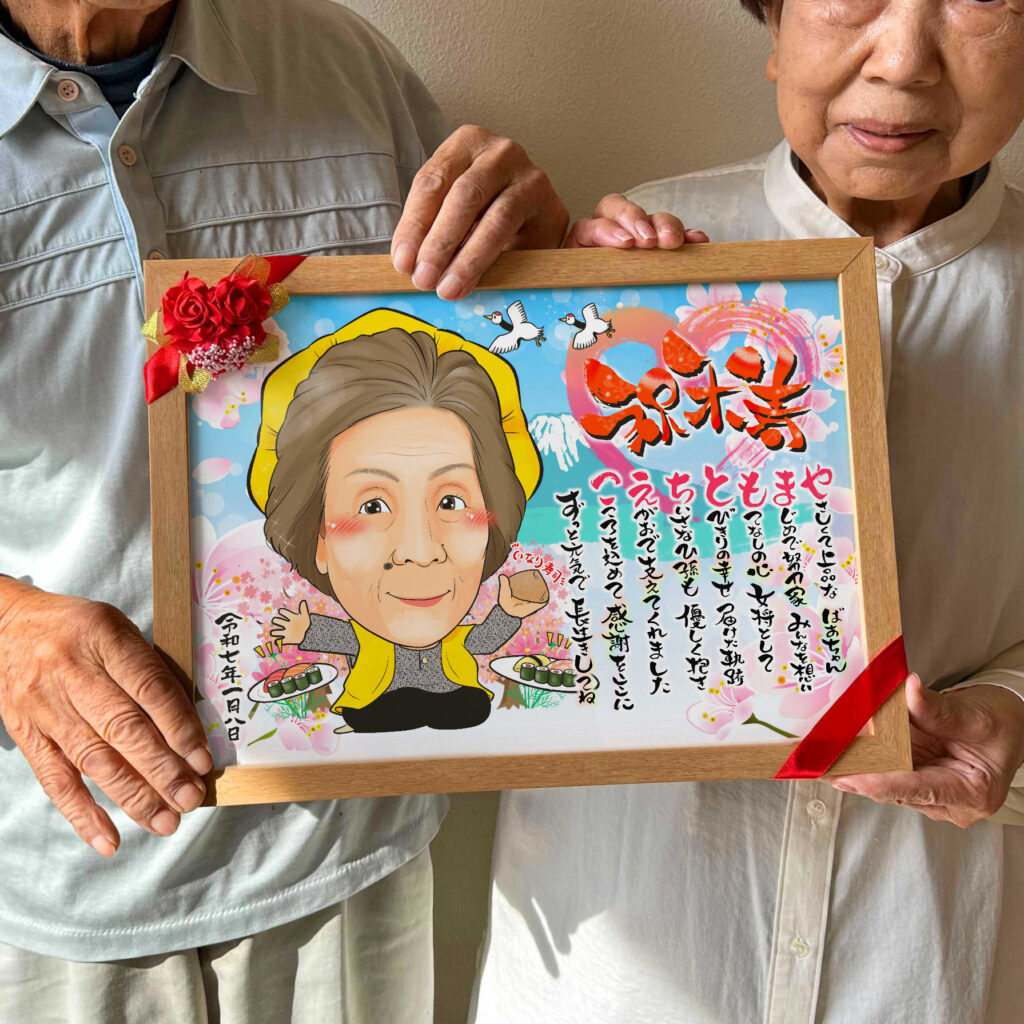 祝米寿
やさしくて上品な ばあちゃん
まじめで努力家 みんなを想い
もてなしの心 女将として
とびきりの幸せ 届けた軌跡
ちいさなひ孫も 優しく抱き
えがおで支えてくれました
こころを込めて 感謝をここに
ずっと元気で 長生きしてね
いなり寿司
令和七年一月八日